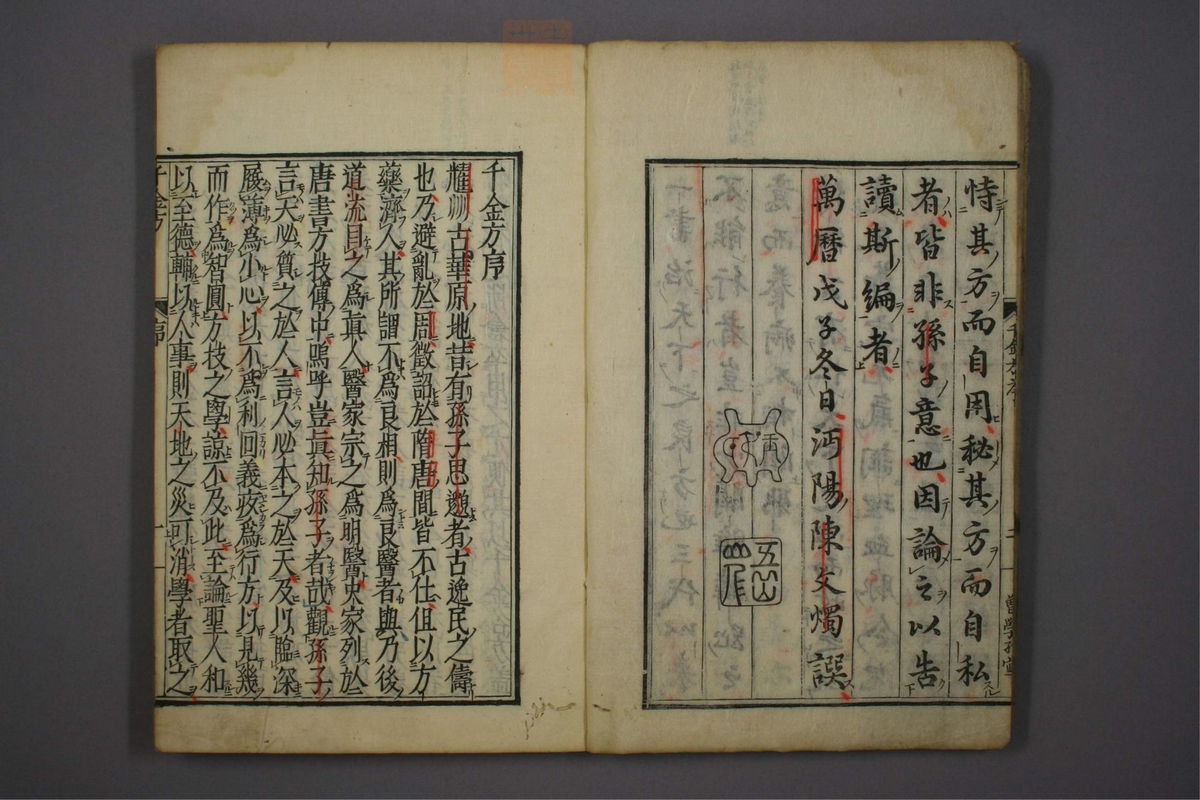 恃其方而自用秘其方而自私
者皆非孫子意也因論之以告
讀斯編者
萬曆戊子冬日沔陽陳文燭譔
五岳
山人
千金方序
耀州古華原地昔有孫子思邈者古逸民之儔
也乃避亂於周徵詔於隋唐間皆不仕但以方
藥濟人其所謂不為良相則為良醫者與乃後
道流目之為眞人醫家宗之為明醫史家列於
唐書方技傳中嗚呼豈眞知孫子者哉觀孫子
言天必質之於人言人必本之於天及以臨深
履薄為小心以不為利回義疚為行方以見幾
而作為智圓方技之學諒不及此至論聖人和
以至德輔以人事則天地之災可消學者取之
千金方
序
一